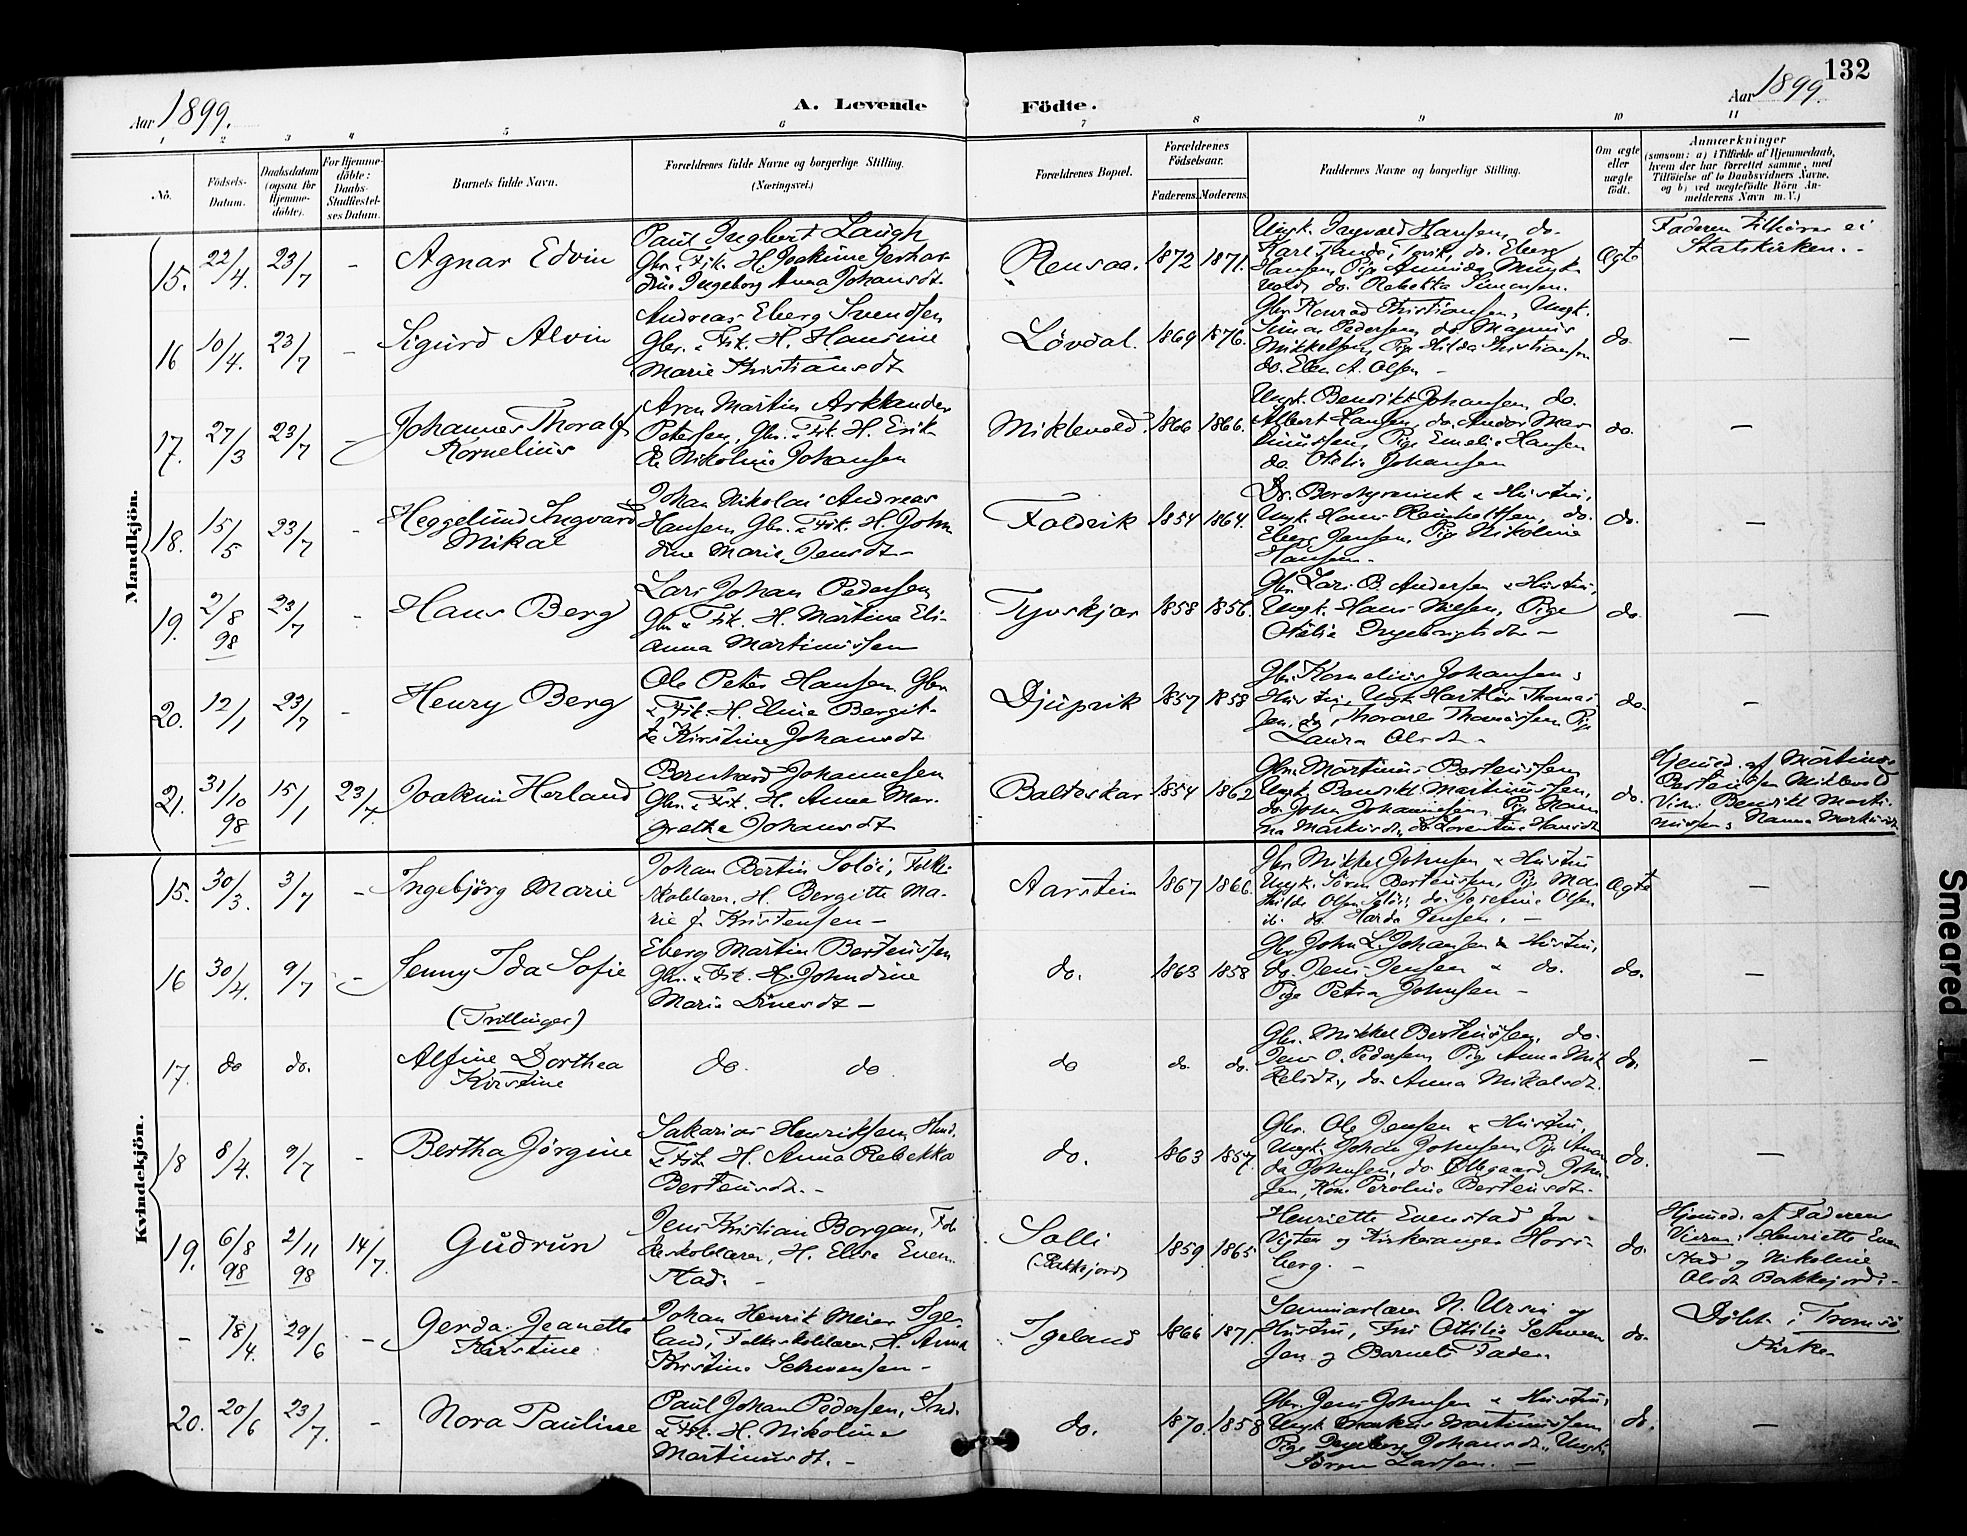 132
Aar 1899.
A. Levende Födte.
Aar 1899.
1 2 3 4 5 6 7 8 9 10 11
No.
Födsels-Datum.
Daabsdatum (ogsaa för Hjemme-döbte).
For Hjemme-döbte: Daabs-Stadfæstel-ses Datum.
Barnets fulde Navn.
Forældrenes fulde Navne og borgerlige Stilling. (Næringsvei.)
Forældrenes Bopæl.
Forældrenes Födselsaar.
Faderens. Moderens.
Faddernes Navne og borgerlige Stilling.
Om ægte eller uægte födt.
Anmærkninger
(saasom: a) i Tilfælde af Hjemmedaab, hvem der har forrettet samme, med Tilföielse af to Daabsvidners Navne, og b) ved uægtefödte Börn An-melderens Navn m. V.)
Mandkjön.
15. 22/4. 23/7 -
Agnar Edvin
Paul Ingbert Laugh
Gbr. & Fisk. H. Joakime Gerhar
dine Ingeborg Anna Johansdt.
Rensaa. 1872 1871.
Ungk. Ingvald Hansen, do.
Hansen, Pige
do. Rebekka Simonsen.
Ægte
Faderen tilhører ei
Statskirken. -
16 10/4. 23/7 -
Sigurd Alvin
Andreas Eberg Svendsen
Gbr. & Fisk. H. Hansine
Marie Kristiansdt
Løvdal. 1869 1876.
Gbr. Konrad Christiansen, Ungk.
Simon Pedersen, do. Magnus
Mikkelsen, Pige Hilda Kristiansen
do. Elen A. Olsen -
do. -
17. 27/3 23/7 -
Johannes Thoralf
Kornelius
Aron Martin Arklander
Petersen, Gbr. & Fisk. H. Erik
ka Nikoline Johansen
Miklevold. 1866 1866.
Ungk. Benedikt Johansen, do.
Albert Hansen, do. Andor Mar
tinussen, Pige Emelie Hansen
do. Otelie Johansen
do. -
18. 15/5 23/7 -
Heggelund Ingvard
Mikal
Johan Nikolai Andreas
Hansen, Gbr. & Fisk. H. John
dine Marie Jensdt. -
Foldvik 1854 1864.
Dr. Borchgrevink & Hustru,
Ungk. Hans Reinholtsen, do.
Eberg Jensen, Pige Nikoline
Hansen. -
do. -
19. 2/8 98 23/7 -
Hans Berg
Lars Johan Pedersen
Gbr. & Fisk. H. Martine Eli-
anna Martinussen
Tjuvskjær 1858 1856.
Gbr. Lars B. Andersen & Hustru,
Ungk. Hans Nilsen, Pige
Otelie Ingebrigtsdt. -
do. -
20. 12/1 23/7 -
Henry Berg
Ole Peter Hansen, Gbr
& Fisk. H. Eline Bergit-
te Kirstine Johansdt
Djupvik 1857 1858
Gbr. Kornelius Johansen &
Hustru, Ungk. Hartløv Thomas
sen, do. Thorarel Thomassen, Pige
Laura Olsdt. -
do. -
21. 31/10 98 15/1 23/7.
Joakim Herland
Bernhard Johannesen
Gbr. & Fisk. H. Anna Mar-
grethe Johansdt
Balteskar 1854 1862
Gbr. Martinus Bertheussen,
Ungk. Benedikt Martinussen,
do. John Johannesen, Pige Han
na Markusdt, do. Lorentine Hansdt
do.
Hjemd. af Martinus
Bertheussen Miklevold
Vidn: Benedikt Marti-
nussen & Hanna Markusdt
Kvindekjön.
15. 30/3. 3/7 -
Ingebjörg Marie
Johan Bertin Soløi, Folke
skolelærer, H. Bergitte Ma-
rie f. Kristensen -
Aarstein 1867 1866.
Gbr. Mikkel Johnsen & Hustru
Ungk. Søren Berteussen, Pige Ma-
thilde Olsen Soløi, do. Josefine Olsen
ib. do. Harda Jensen. -
Ægte -
16 30/4. 9/7 -
Jenny Ida Sofie
(Trillinger)
Eberg Martin Berteussen
Gbr. & Fisk. H. Johndine
Marie Dinesdt -
do. 1863 1858
Gbr. John L. Johansen & Hustru,
do. Jens Jensen & do.
Pige Petra Johnsen -
do. -
17. do do.
Alfine Dorthea
Kirstine
do. do
do do. do.
Gbr. Mikkel Berteussen, do.
Jens O. Pedersen, Pige Anna Mik
kelsdt., do. Anna Mikalsdt.
do. -
18 8/4. 9/7 -
Bertha Jörgine
Sakarias Henriksen, Ind.
& Fisk. H. Anna Rebekka
Berteusdt. -
do. 1863 1857.
Gbr. Ole Jensen & Hustru,
Ungk. Johan Johnsen, Pige Aman
da Johnsen, do. Oldegaard John
sen, Kone Peroline Berteusdt. -
do. -
19. 6/8 98 2/11 98 14/7.
Gudrun
Jens Kristian Borgan, Fol
keskolelærer, H. Ellse Even
stad. -
Solli
(Bakkejord)
1859 1865
Henriette Evenstad fra
Vigten og Kirkesanger Hors-
berg. -
do.
Hjemd. af Faderen
Vidner: Henriette Even
stad og Nikoline
Olsdt Bakkejord. -
- 18/4. 29/6 -
Gerda Jeanette
Kirstine
Johan Henrik Meier Ige-
land, Folkeskolelærer, H. Anna
Kirstine Schwensen -
Igeland 1866 1871.
Seminarlærer N. Ursin og
Hustru, Frk. Ottilie Schwen
sen og Barnets Fader.
do.
Døbt i Tromsø
Kirke
20. 20/6 23/7. -
Nora Pauline
Paul Johan Pedersen, Ind.
& Fisk. H. Nikoline
Martinusdt. -
do. 1870. 1858
Gbr. Jens Johnsen & Hustru,
Ungk. Markus Martinussen
Pige Ingeborg Johansdt., Ungk.
Søren Larsen. -
do. -
Smeared